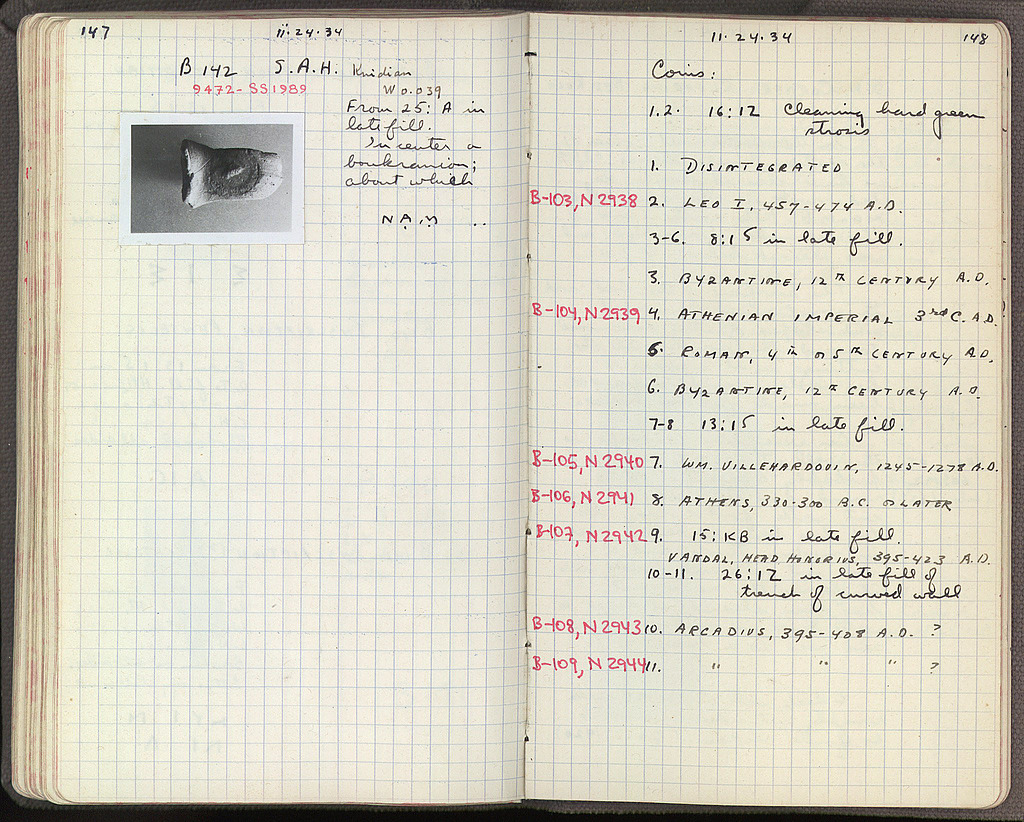 147
ii·24·34
B 142 S.A.H. Knidian
9472-SS1989 W 0.039
From 25: A in
late fill.
In center a
boukranion;
about which
N A
11·24·34
148
Coins:
1.2. 16:ΙΖ Cleaning hard green
strosis
1. DISINTEGRATED
B-103, N 2938 2. LEO I, 457-474 A.D.
3-6. 8:15 in late fill.
3. BYZANTINE, 12TH CENTURY A.D.
B-104, N2939 4. ATHENIAN IMPERIAL 3rd C. A.D.
5. ROMAN, 4TH OR 5TH CENTURY A.D.
6. BYZANTINE, 12TH CENTURY A.D.
7-8 13:15 in late fill.
B-105, N 2940 7. WM. VILLEHARDOUIN, 1245-1278 A.D.
B-106, N2941 8. ATHENS, 330-300 B.C. OR LATER
B-107, N2942 9. 15:KB in late fill.
VANDAL, HEAD HONORIUS, 395-423 A.D.
10-11. 26:ΙΖ in late fill of
trench of curved wall
B-108, N2943 10. ARCADIUS, 395-408 A.D. ?
B-109, N2944 11. " " " ?